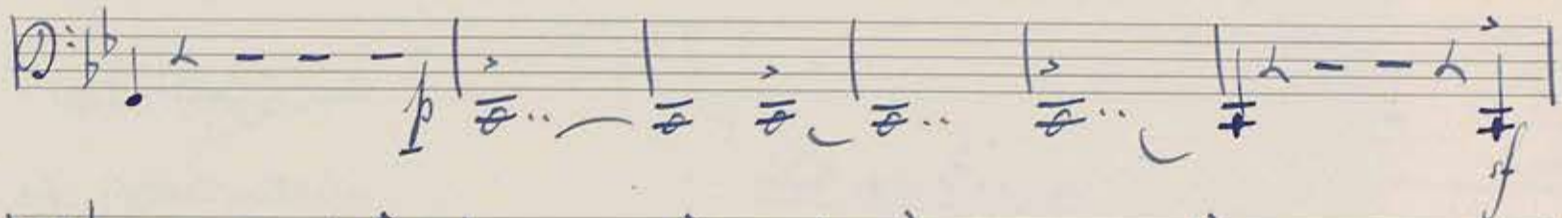 p
sf